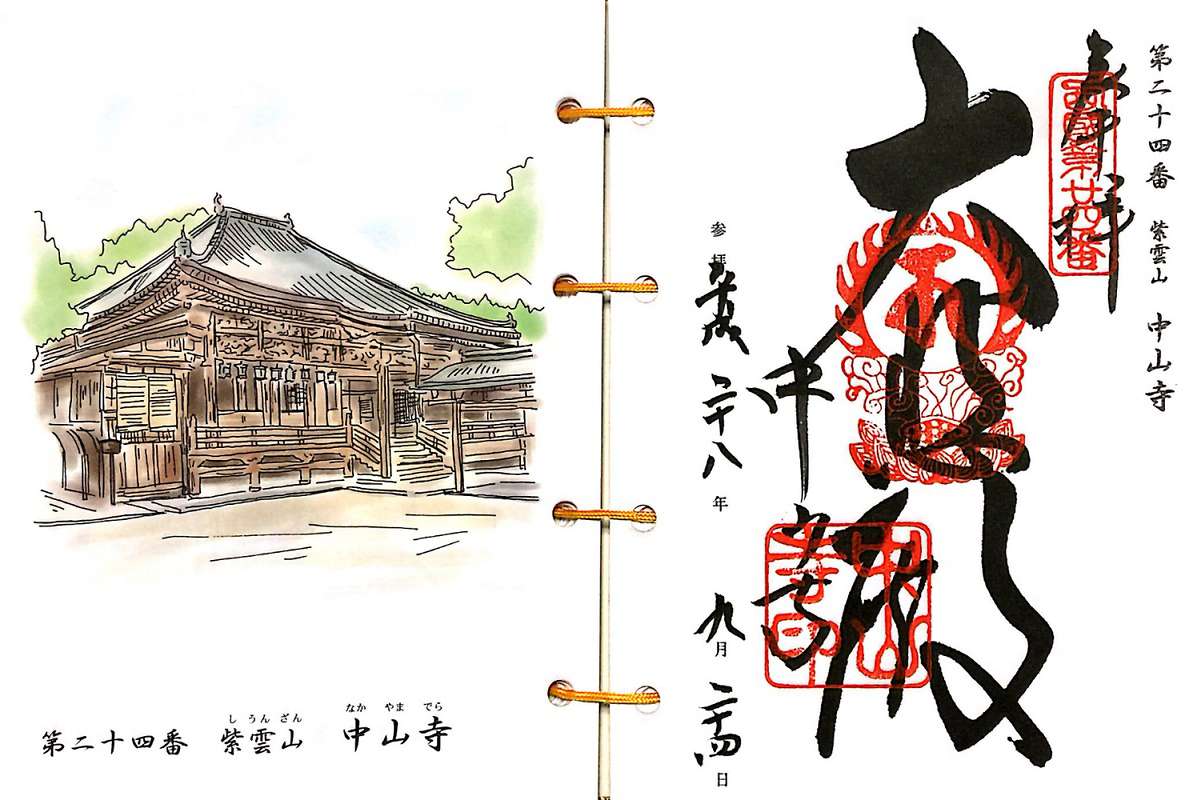 第二十四番 紫雲山 中山寺
奉拝
西國第廿四番
大悲殿
中山寺
中山寺印
参拝 平成二十八年九月二十四日
しうんざん なかやまでら
第二十四番 紫雲山 中山寺